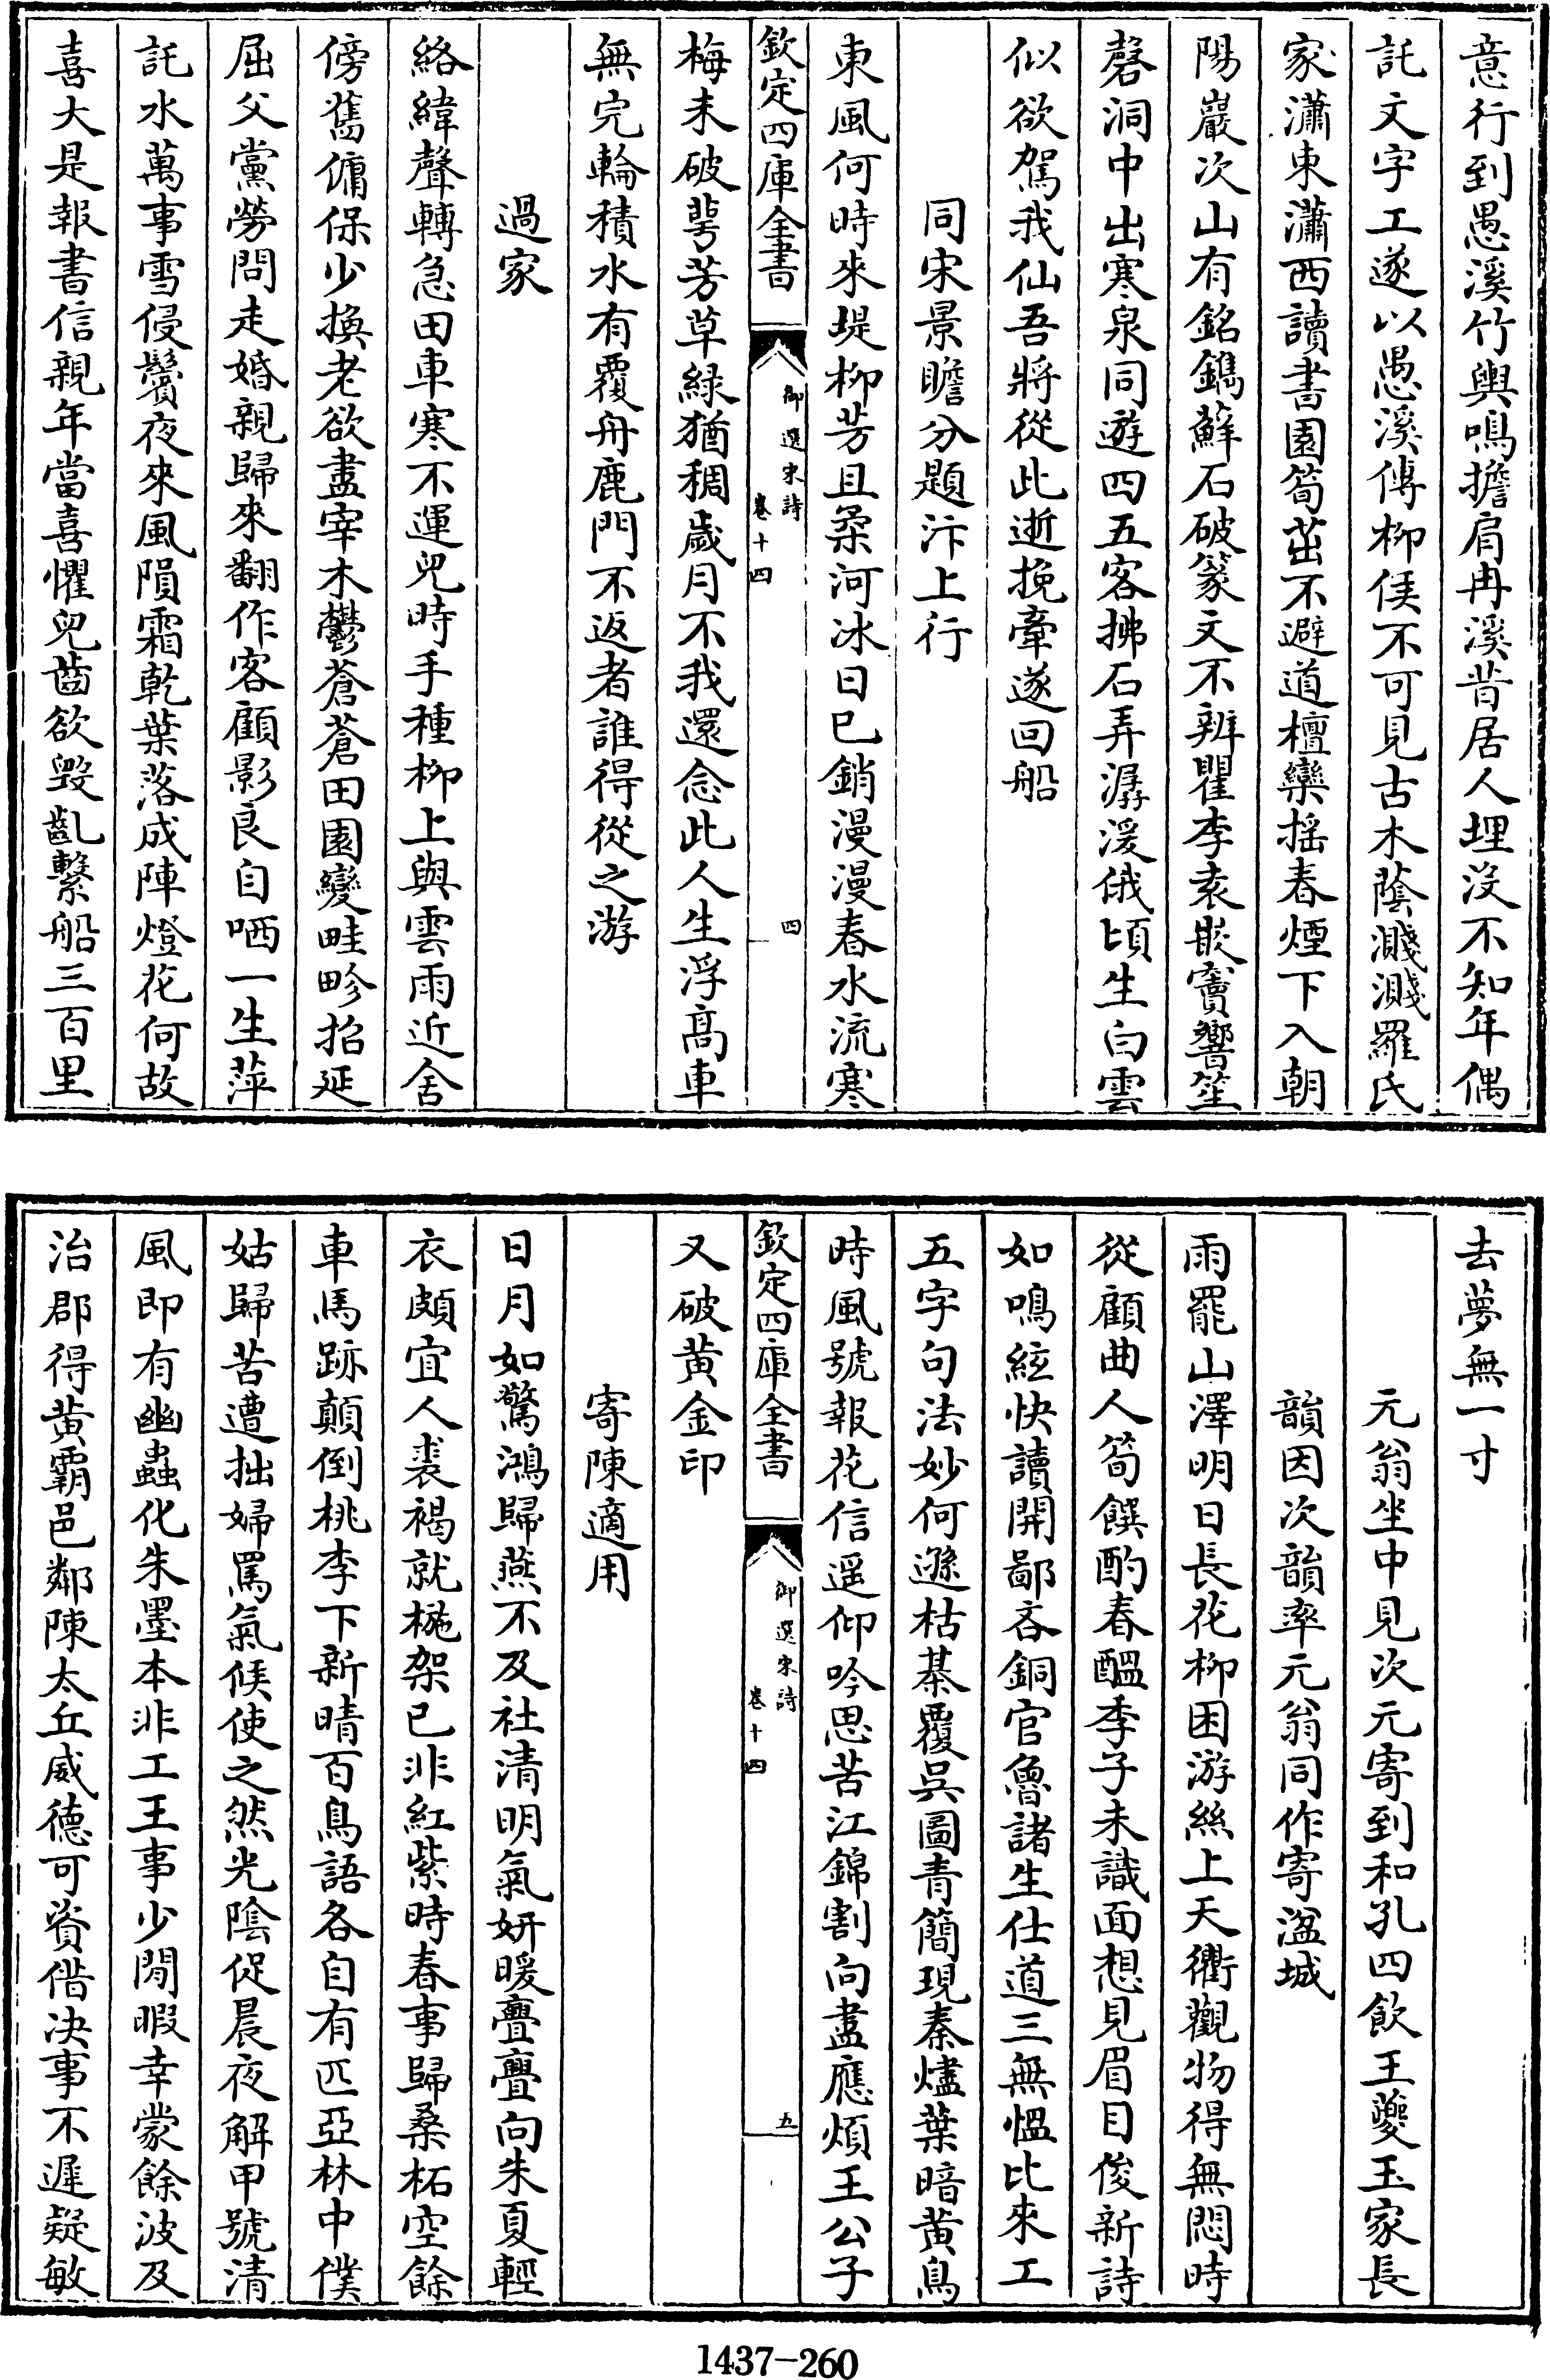 意行到愚溪竹輿鳴擔肩冉溪昔居人埋沒不知年偶
託文字工遂以愚溪傳柳侯不可見古木蔭濺濺羅氏
家瀟東瀟西讀書園筍茁不避道檀欒搖春煙下入朝
陽巖次山有銘鐫蘚石破篆文不辨瞿李袁嵌竇響笙
磬洞中出寒泉同遊四五客拂石弄潺湲俄頃生白雲
似欲駕我仙吾將從此逝挽牽遂回船
同宋景瞻分題汴上行
東風何時來堤柳芳且柔河冰日已銷漫漫春水流寒
欽定四庫全書
御選宋詩
卷十四
四
梅未破萼芳草綠猶稠歲月不我還念此人生浮高車
無完輪積水有覆舟鹿門不返者誰得從之游
過家
絡緯聲轉急田車寒不運兒時手種柳上與雲雨近舍
傍舊傭保少換老欲盡宰木鬱蒼蒼田園變畦畛招延
屈父黨勞問走婚親歸來翻作客顧影良自哂一生萍
託水萬事雪侵鬢夜來風隕霜乾葉落成陣燈花何故
喜大是報書信親年當喜懼兒齒欲毀齓繫船三百里
去夢無一寸
元翁坐中見次元寄到和孔四飲王夔玉家長
韻因次韻率元翁同作寄湓城
雨罷山澤明日長花柳困游絲上天衢觀物得無悶時
從顧曲人筍饌酌春醖季子未識面想見眉目俊新詩
如鳴絃快讀開鄙吝銅官魯諸生仕道三無愠比來工
五字句法妙何遜枯棊覆吳圖青簡現秦燼葉暗黃鳥
時風號報花信遥仰吟思苦江錦割向盡應煩王公子
欽定四庫全書
御選宋詩
卷十四
五
又破黃金印
寄陳適用
日月如驚鴻歸燕不及社清明氣妍暖亹亹向朱夏輕
衣頗宜人裘褐就椸架已非紅紫時春事歸桑柘空餘
車馬跡顛倒桃李下新晴百鳥語各自有匹亞林中僕
姑歸苦遭拙婦罵氣候使之然光陰促晨夜解甲號清
風即有幽蟲化朱墨本非工王事少閒暇幸蒙餘波及
治郡得黃霸邑鄰陳太丘威德可資借决事不遲疑敏
1437-260